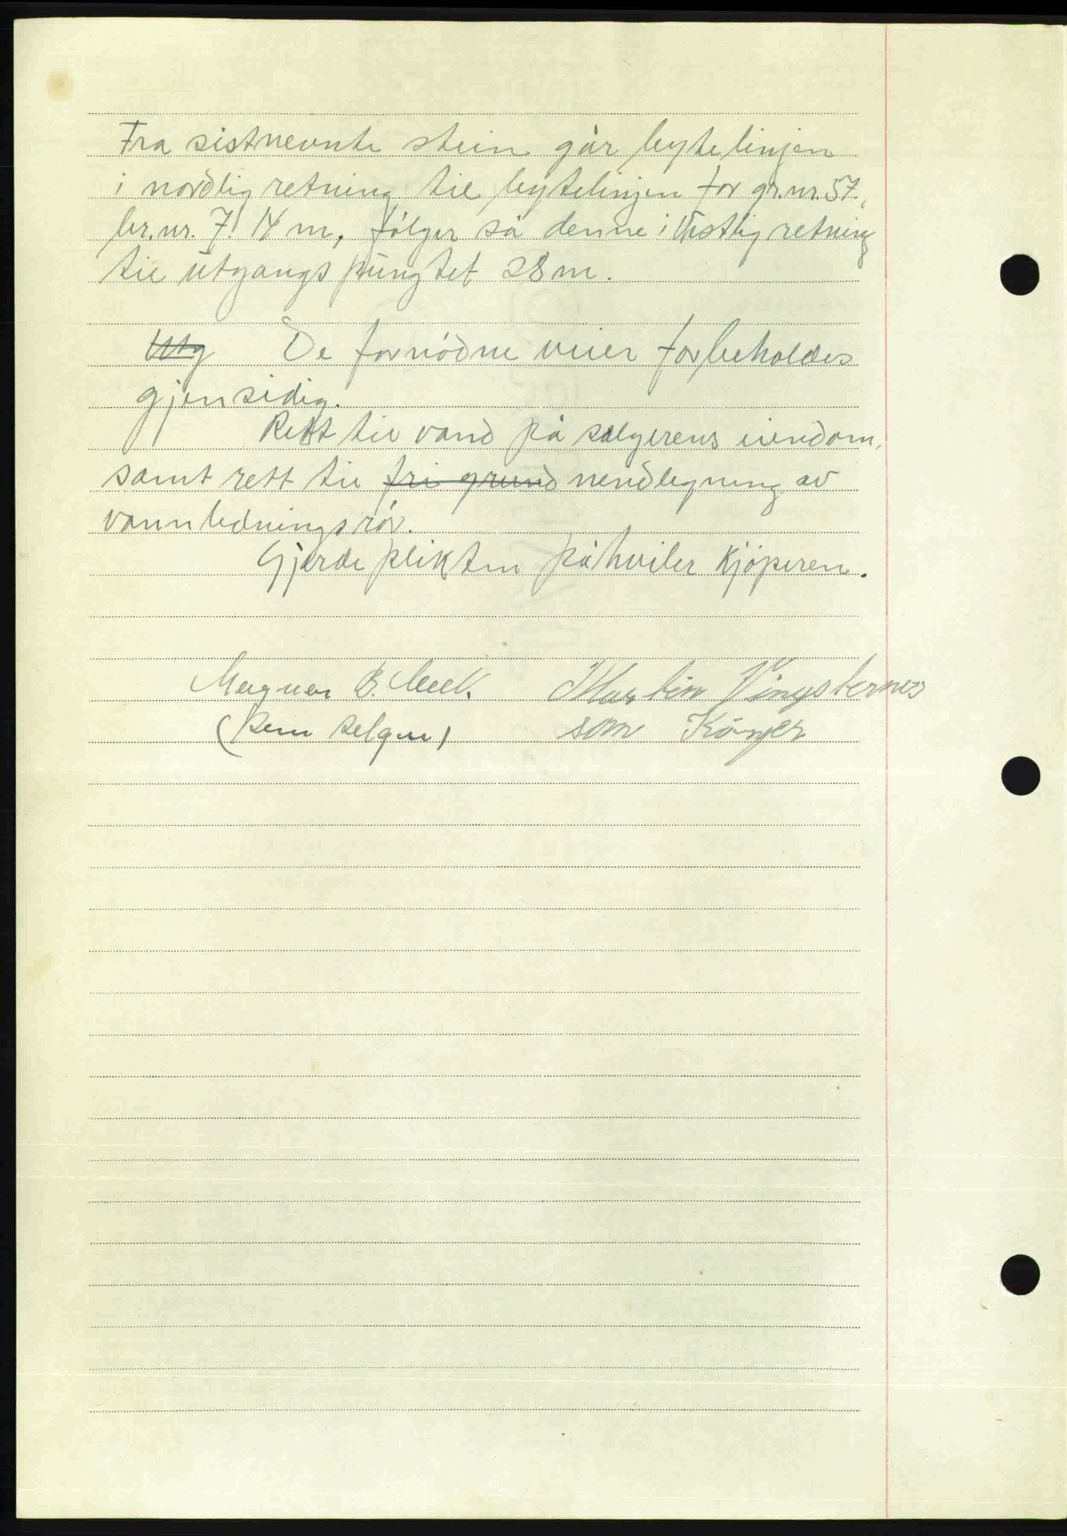 Fra sistnevnte stein går bytelinjen
i nordlig retning til bytelinjen for gr.nr. 57.,
br.nr. 7! 14 m, følger så denne i Vestlig retning
til utgangspungtet 28 m.
Utg De fornødne veier forbeholdes
gjensidig.
Rett til vand på selgerens eiendom,
samt rett til fri grund nendlegning av
vannledningsrör.
Gjerde plikten påhviler Kjøperen.
Magnar B. Martin Vingsternes
(Som selger) som Køper